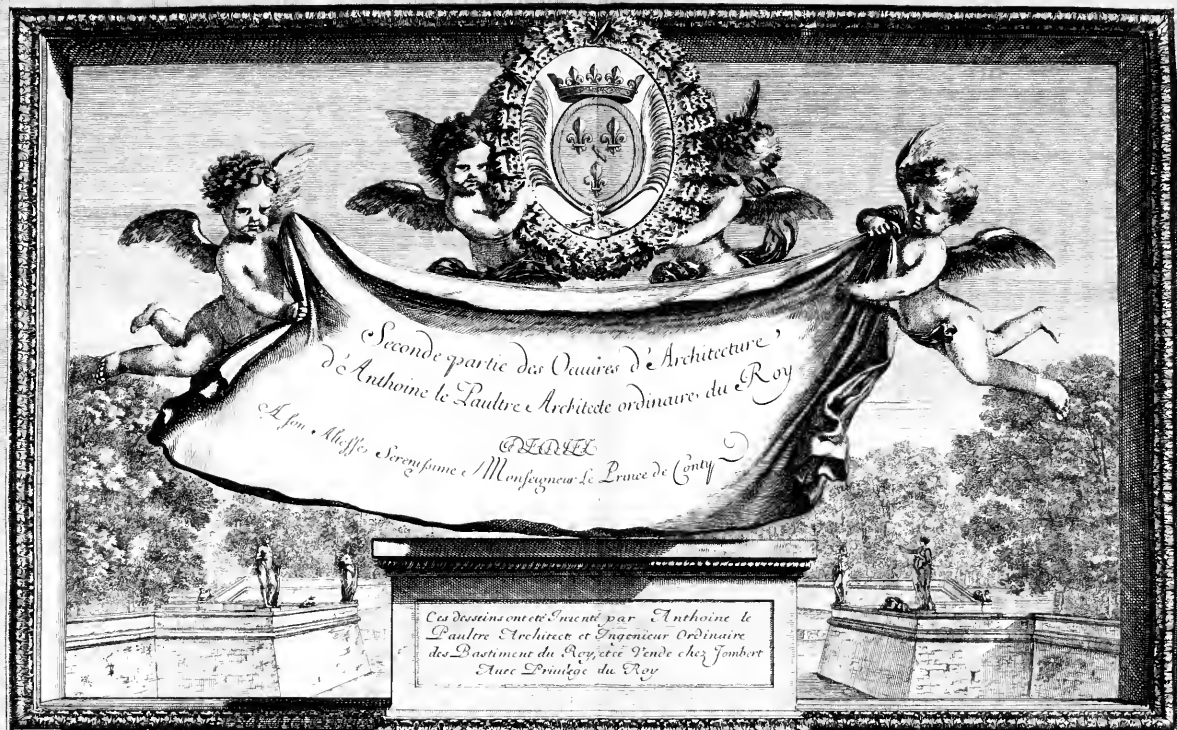 Seconde partie des Oeuures d'Architecture
d'Anthoine le Paultre Architecte ordinaire du Roy
DEDIEE
A son Altesse Serenissime Monseigneur Le Prince de Conty
Ces desseins ont eté Inuenté par Anthoine le
Paultre Architecte et Ingenieur Ordinaire
des Bastiment du Roy, et ce Vende chez Jombert
Auec Priuilege du Roy